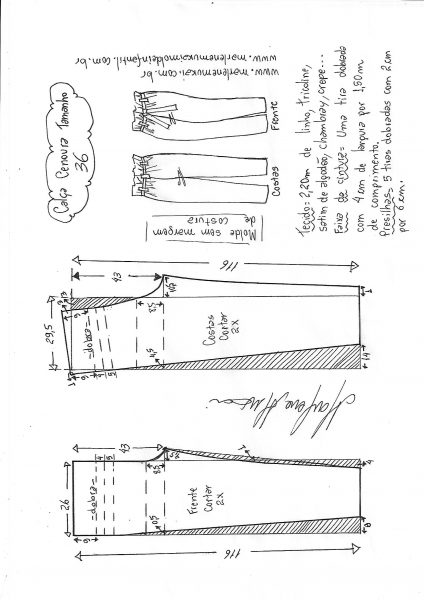 Calça Cenoura Tamanho
36
www.marlenemukai.com.br
www.marlenemukaimoldeinfantil.com.br
Frente
Costas
Molde sem margem
de costura
Tecido = 2,20m de linho, tricoline,
setim de algodão, chambray, crepe...
Faixa de cintura = Uma tira dobrada
com 4 cm de largura por 1,50m
de comprimento.
Presilhas = 5 tiras dobradas com 2cm
por 6 cm.
116
43
29,5
=dobra=
8,5
Costas
Cortar
2x
14
1
116
43
26
=dobra=
8,5
Frente
Cortar
2x
0,5
8
4
1